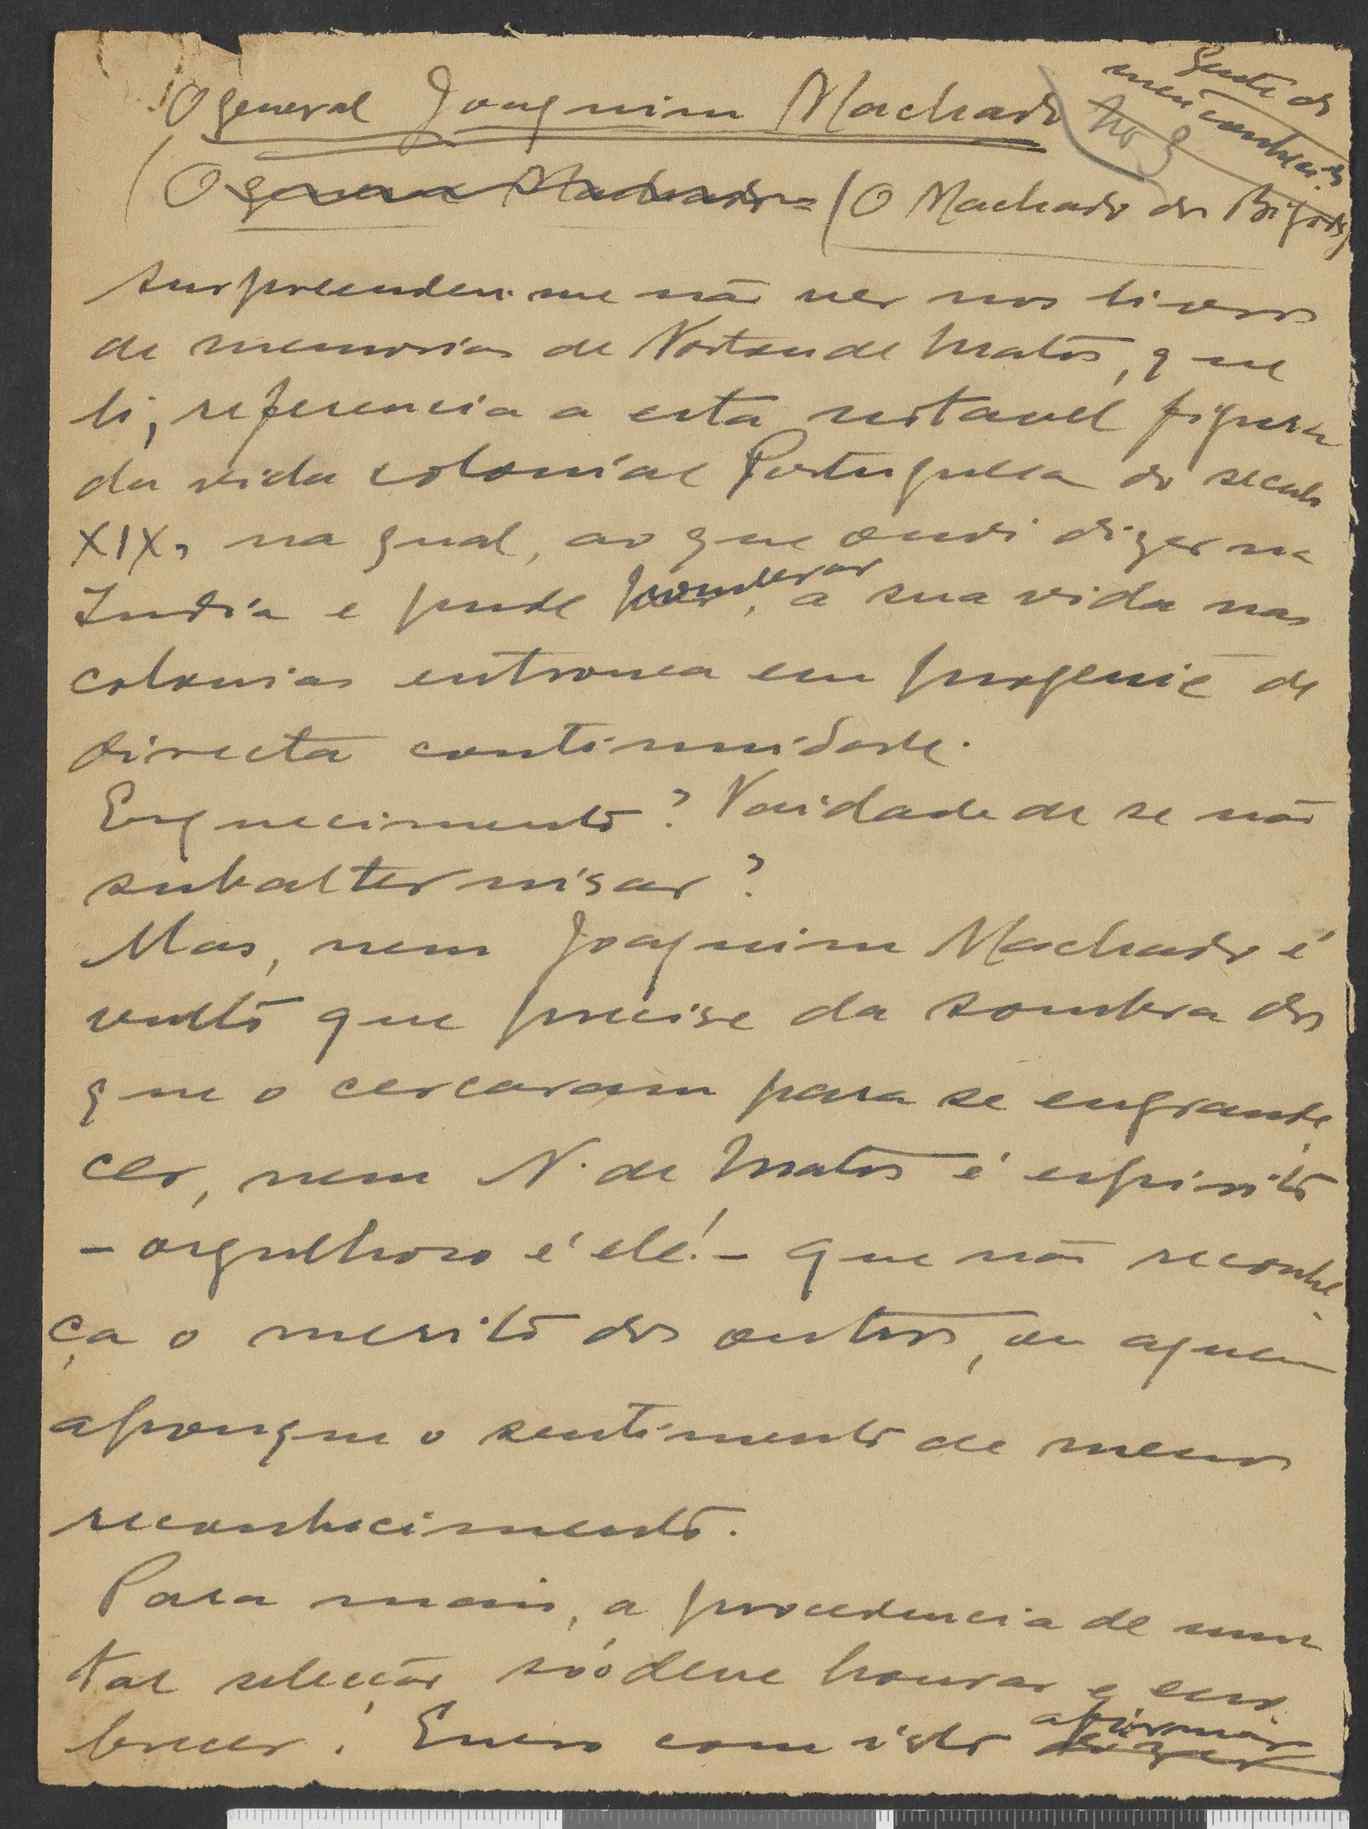 Gente do
meu conheci.to
O general Joaquim Machado
(O general Machado = (O Machado dos Bigodes)
Surpreendeu-me não ver nos livros
de memorias de Norton de Matos, que
li, referencia a esta notavel figura
da vida colonial Portuguesa do seculo
XIX, na qual, ao que ouvi dizer na
India e pude ponderar, a sua vida nas
colonias entronca em progenie de
directa continuidade.
Esquecimento? Vaidade de se não
subalternisar?
Mas, nem Joaquim Machado é
vulto que precise da sombra dos
que o cercaram para se engrande
cer, nem N. de Matos é espirito
- orgulhoso é ele! - que não reconhe
ça o merito dos outros, ou a quem
apouque o sentimento de menos
reconhecimento.
Para mais, a procedencia de uma
tal selecção só deve honrar e eno
brecer! Quero com isto dizer afirmar